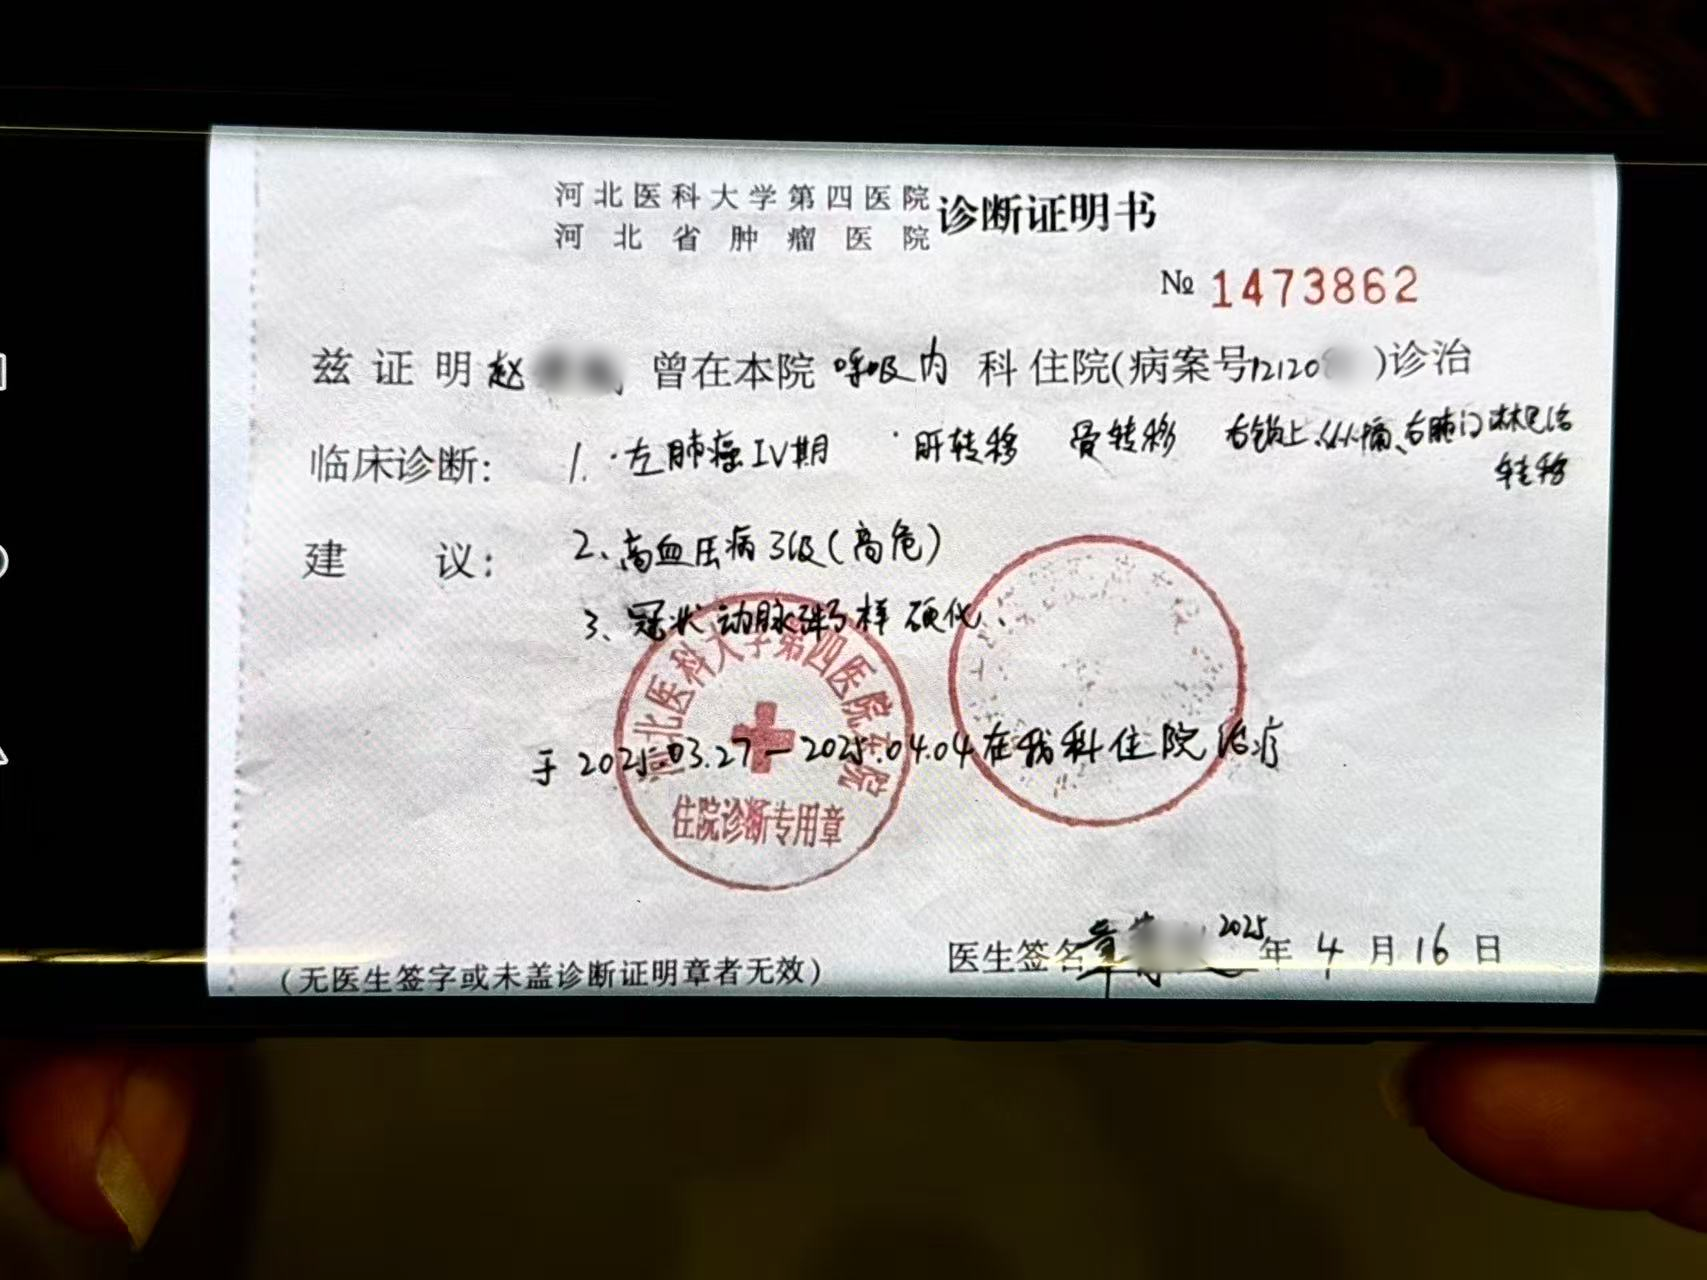 河北医科大学第四医院
河北省肿瘤医院
诊断证明书
№ 1473862
兹证明赵 曾在本院 呼吸内 科住院(病案号12120 )诊治
临床诊断: 1.左肺癌IV期 肝转移 骨转移 右锁上、纵隔、右肺门淋巴结
转移
建 议: 2、高血压病3级(高危)
3、冠状动脉粥样硬化.
河北医科大学第四医院 院
住院诊断专用章
于2025.03.27-2025.04.04在我科住院治疗
医生签名 2025年4月16日
(无医生签字或未盖诊断证明章者无效)